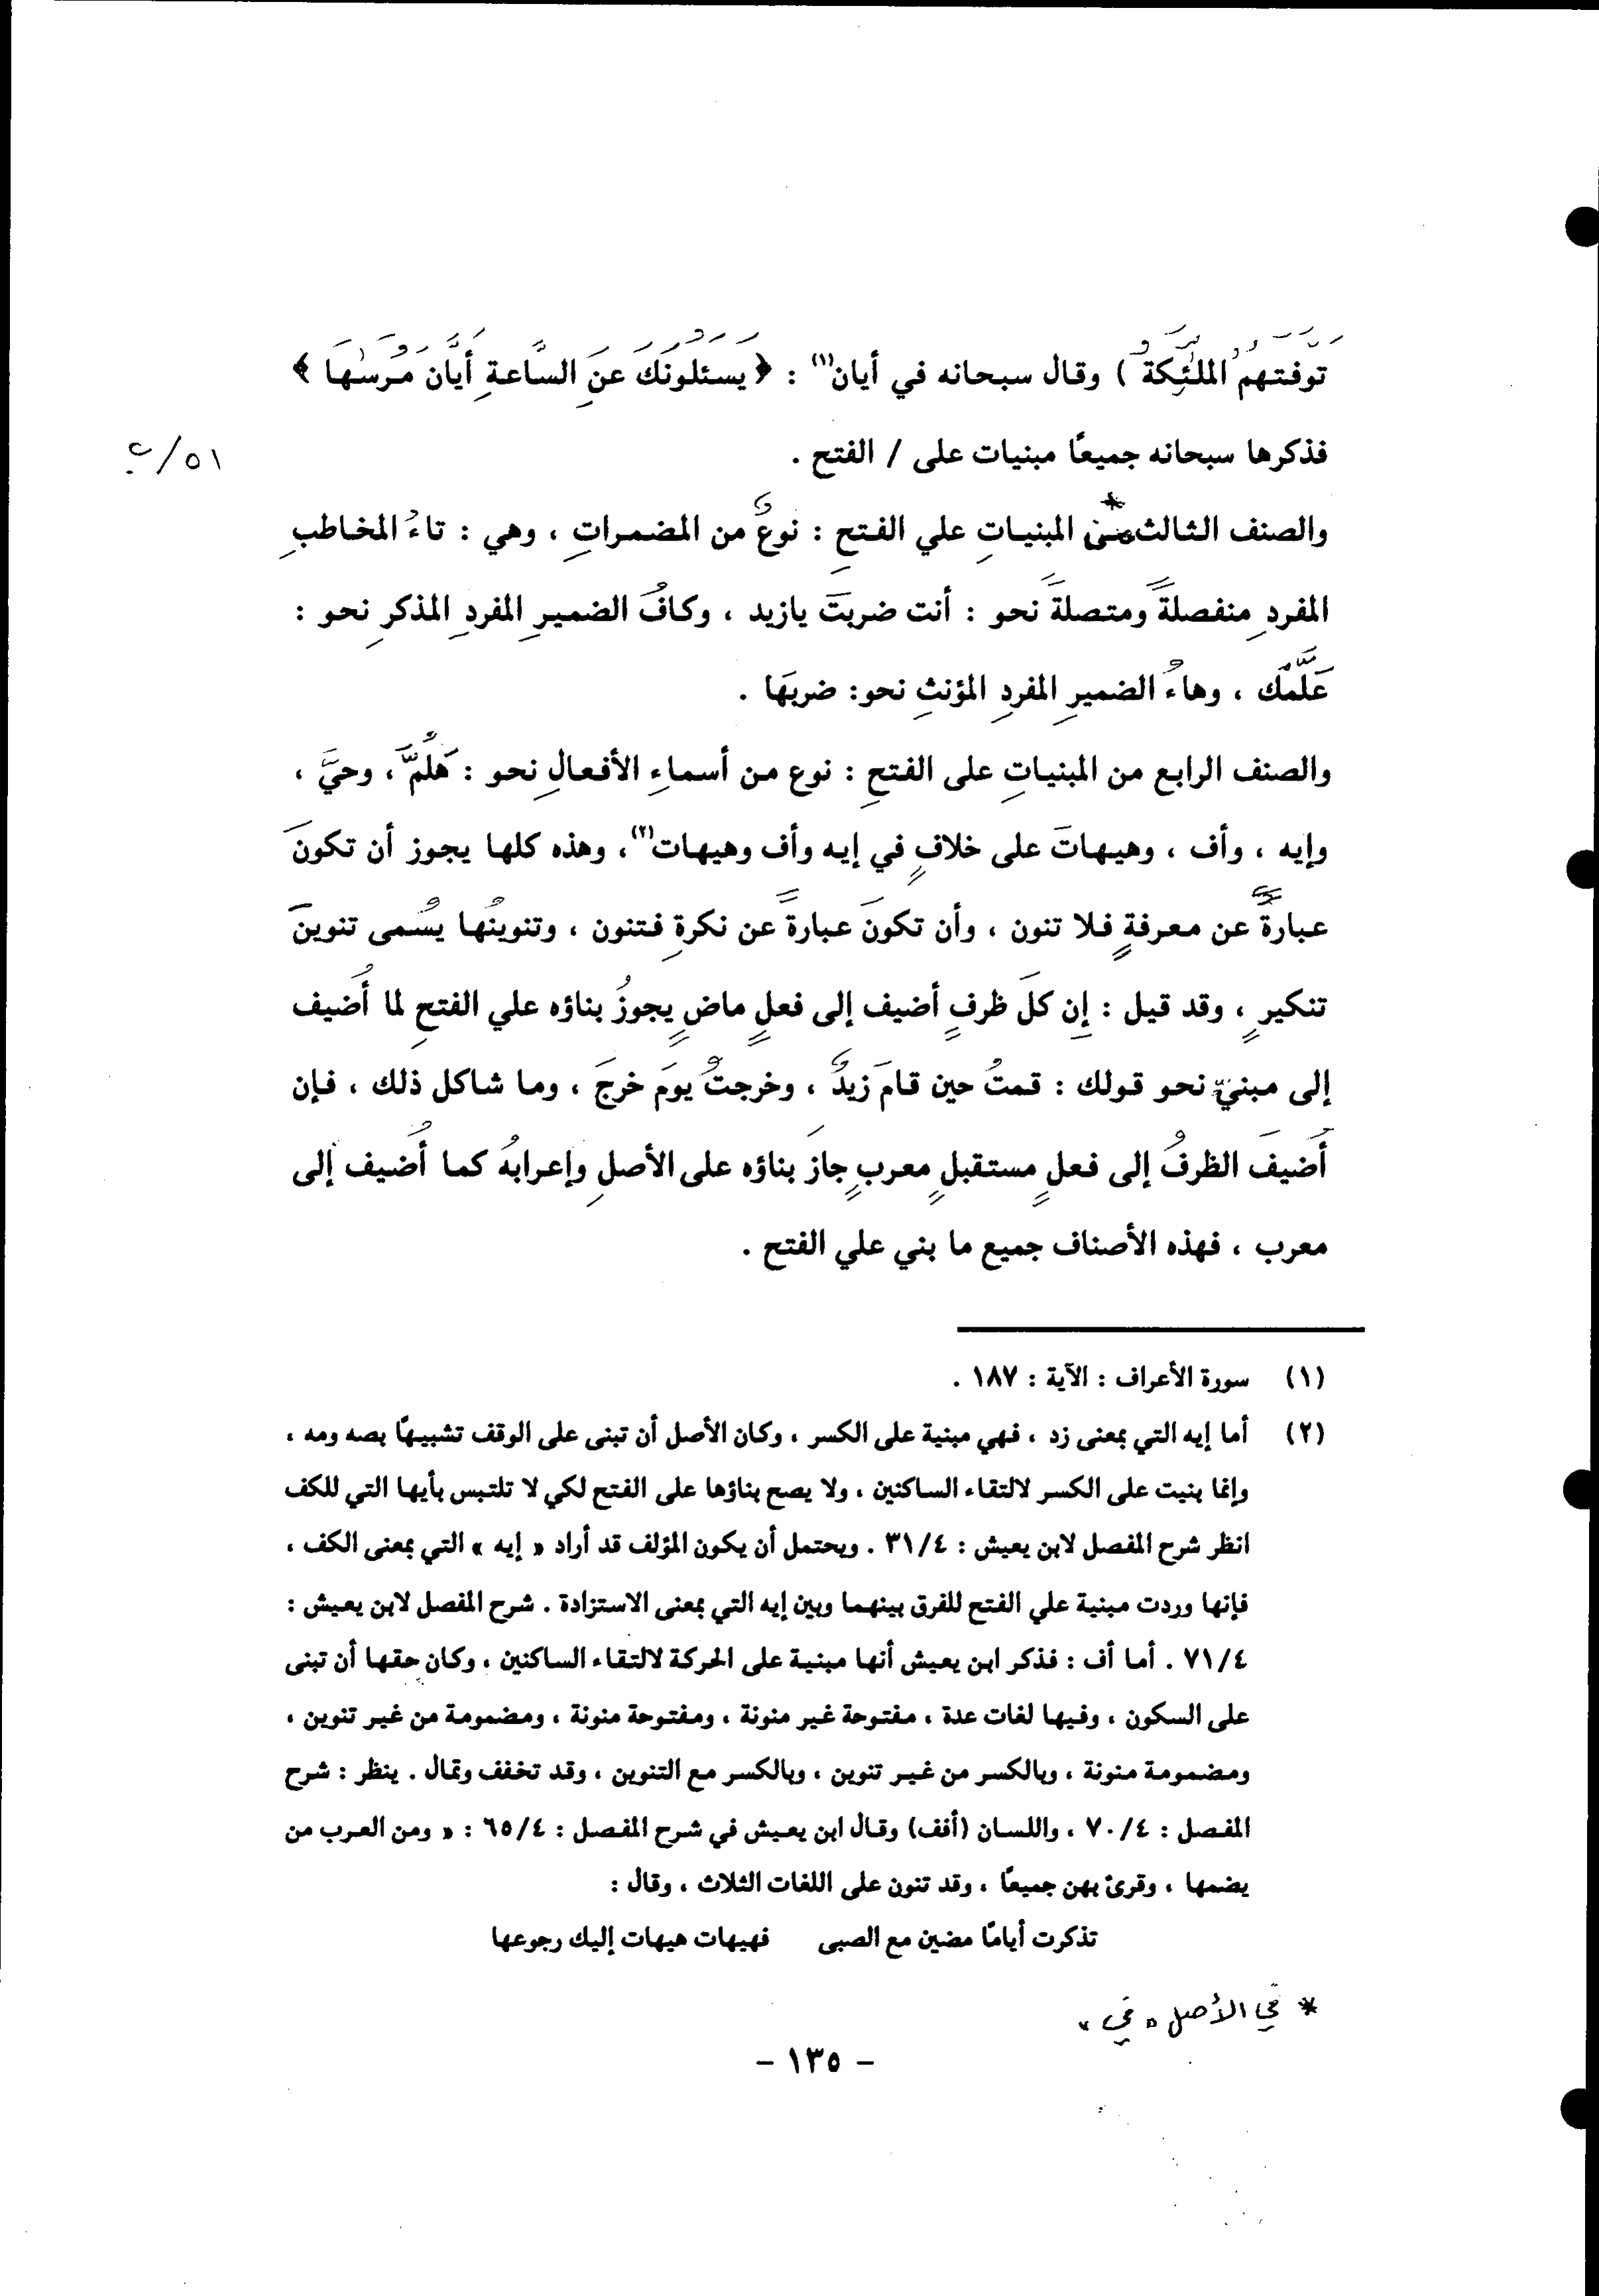 تَوَفَّتْهُمُ الْمَلَٰئِكَةُ ) وقال سبحانه في أيان(١) : ﴿ يَسْئَلُونَكَ عَنِ السَّاعَةِ أَيَّانَ مُرْسَٰهَا ﴾
فذكرها سبحانه جميعًا مبنيات على / الفتح .
٥١/ب
والصنف الثالث من* المبنياتِ علي الفتحِ : نوعٌ من المضمراتِ ، وهي : تاءُ المخاطبِ
المفردِ منفصلةً ومتصلةً نحو : أنت ضربتَ يازيد ، وكافُ الضميرِ المفردِ المذكرِ نحو :
عَلَّمَكَ ، وهاءُ الضميرِ المفردِ المؤنثِ نحو: ضربَها .
والصنف الرابع من المبنياتِ على الفتحِ : نوع من أسماءِ الأفعالِ نحو : هَلُمَّ ، وحيَّ ،
وإيه ، وأف ، وهيهاتَ على خلافٍ في إيه وأف وهيهات(٢) ، وهذه كلها يجوز أن تكونَ
عبارةً عن معرفةٍ فلا تنون ، وأن تكونَ عبارةً عن نكرةِ فتنون ، وتنوينُها يُسمى تنوينَ
تنكيرٍ ، وقد قيل : إن كلَ ظرفٍ أضيف إلى فعلٍ ماضٍ يجوزُ بناؤه علي الفتحِ لما أُضيف
إلى مبنيٍّ نحو قولك : قمتُ حين قامَ زيدٌ ، وخرجتُ يومَ خرجَ ، وما شاكل ذلك ، فإن
أُضيفَ الظرفُ إلى فعلٍ مستقبلٍ معربٍ جازَ بناؤه على الأصلِ وإعرابهُ كما أُضيف إلى
معرب ، فهذه الأصناف جميع ما بني علي الفتح .
(١) سورة الأعراف : الآية : ١٨٧ .
(٢) أما إيه التي بمعنى زد ، فهي مبنية على الكسر ، وكان الأصل أن تبنى على الوقف تشبيهًا بصه ومه ،
وإنما بنيت على الكسر لالتقاء الساكنين ، ولا يصح بناؤها على الفتح لكي لا تلتبس بأيها التي للكف
انظر شرح المفصل لابن يعيش : ٣١/٤ . ويحتمل أن يكون المؤلف قد أراد « إيه » التي بمعنى الكف ،
فإنها وردت مبنية علي الفتح للفرق بينهما وبين إيه التي بمعنى الاستزادة . شرح المفصل لابن يعيش :
٧١/٤ . أما أف : فذكر ابن يعيش أنها مبنية على الحركة لالتقاء الساكنين ، وكان حقها أن تبنى
على السكون ، وفيها لغات عدة ، مفتوحة غير منونة ، ومفتوحة منونة ، ومضمومة من غير تنوين ،
ومضمومة منونة ، وبالكسر من غير تنوين ، وبالكسر مع التنوين ، وقد تخفف وتمال . ينظر : شرح
المفصل : ٧٠/٤ ، واللسان (أفف) وقال ابن يعيش في شرح المفصل : ٦٥/٤ : « ومن العرب من
يضمها ، وقرئ بهن جميعًا ، وقد تنون على اللغات الثلاث ، وقال :
تذكرت أيامًا مضين مع الصبى فهيهات هيهات إليك رجوعها
* في الأصل « في »
- ١٣٥ -